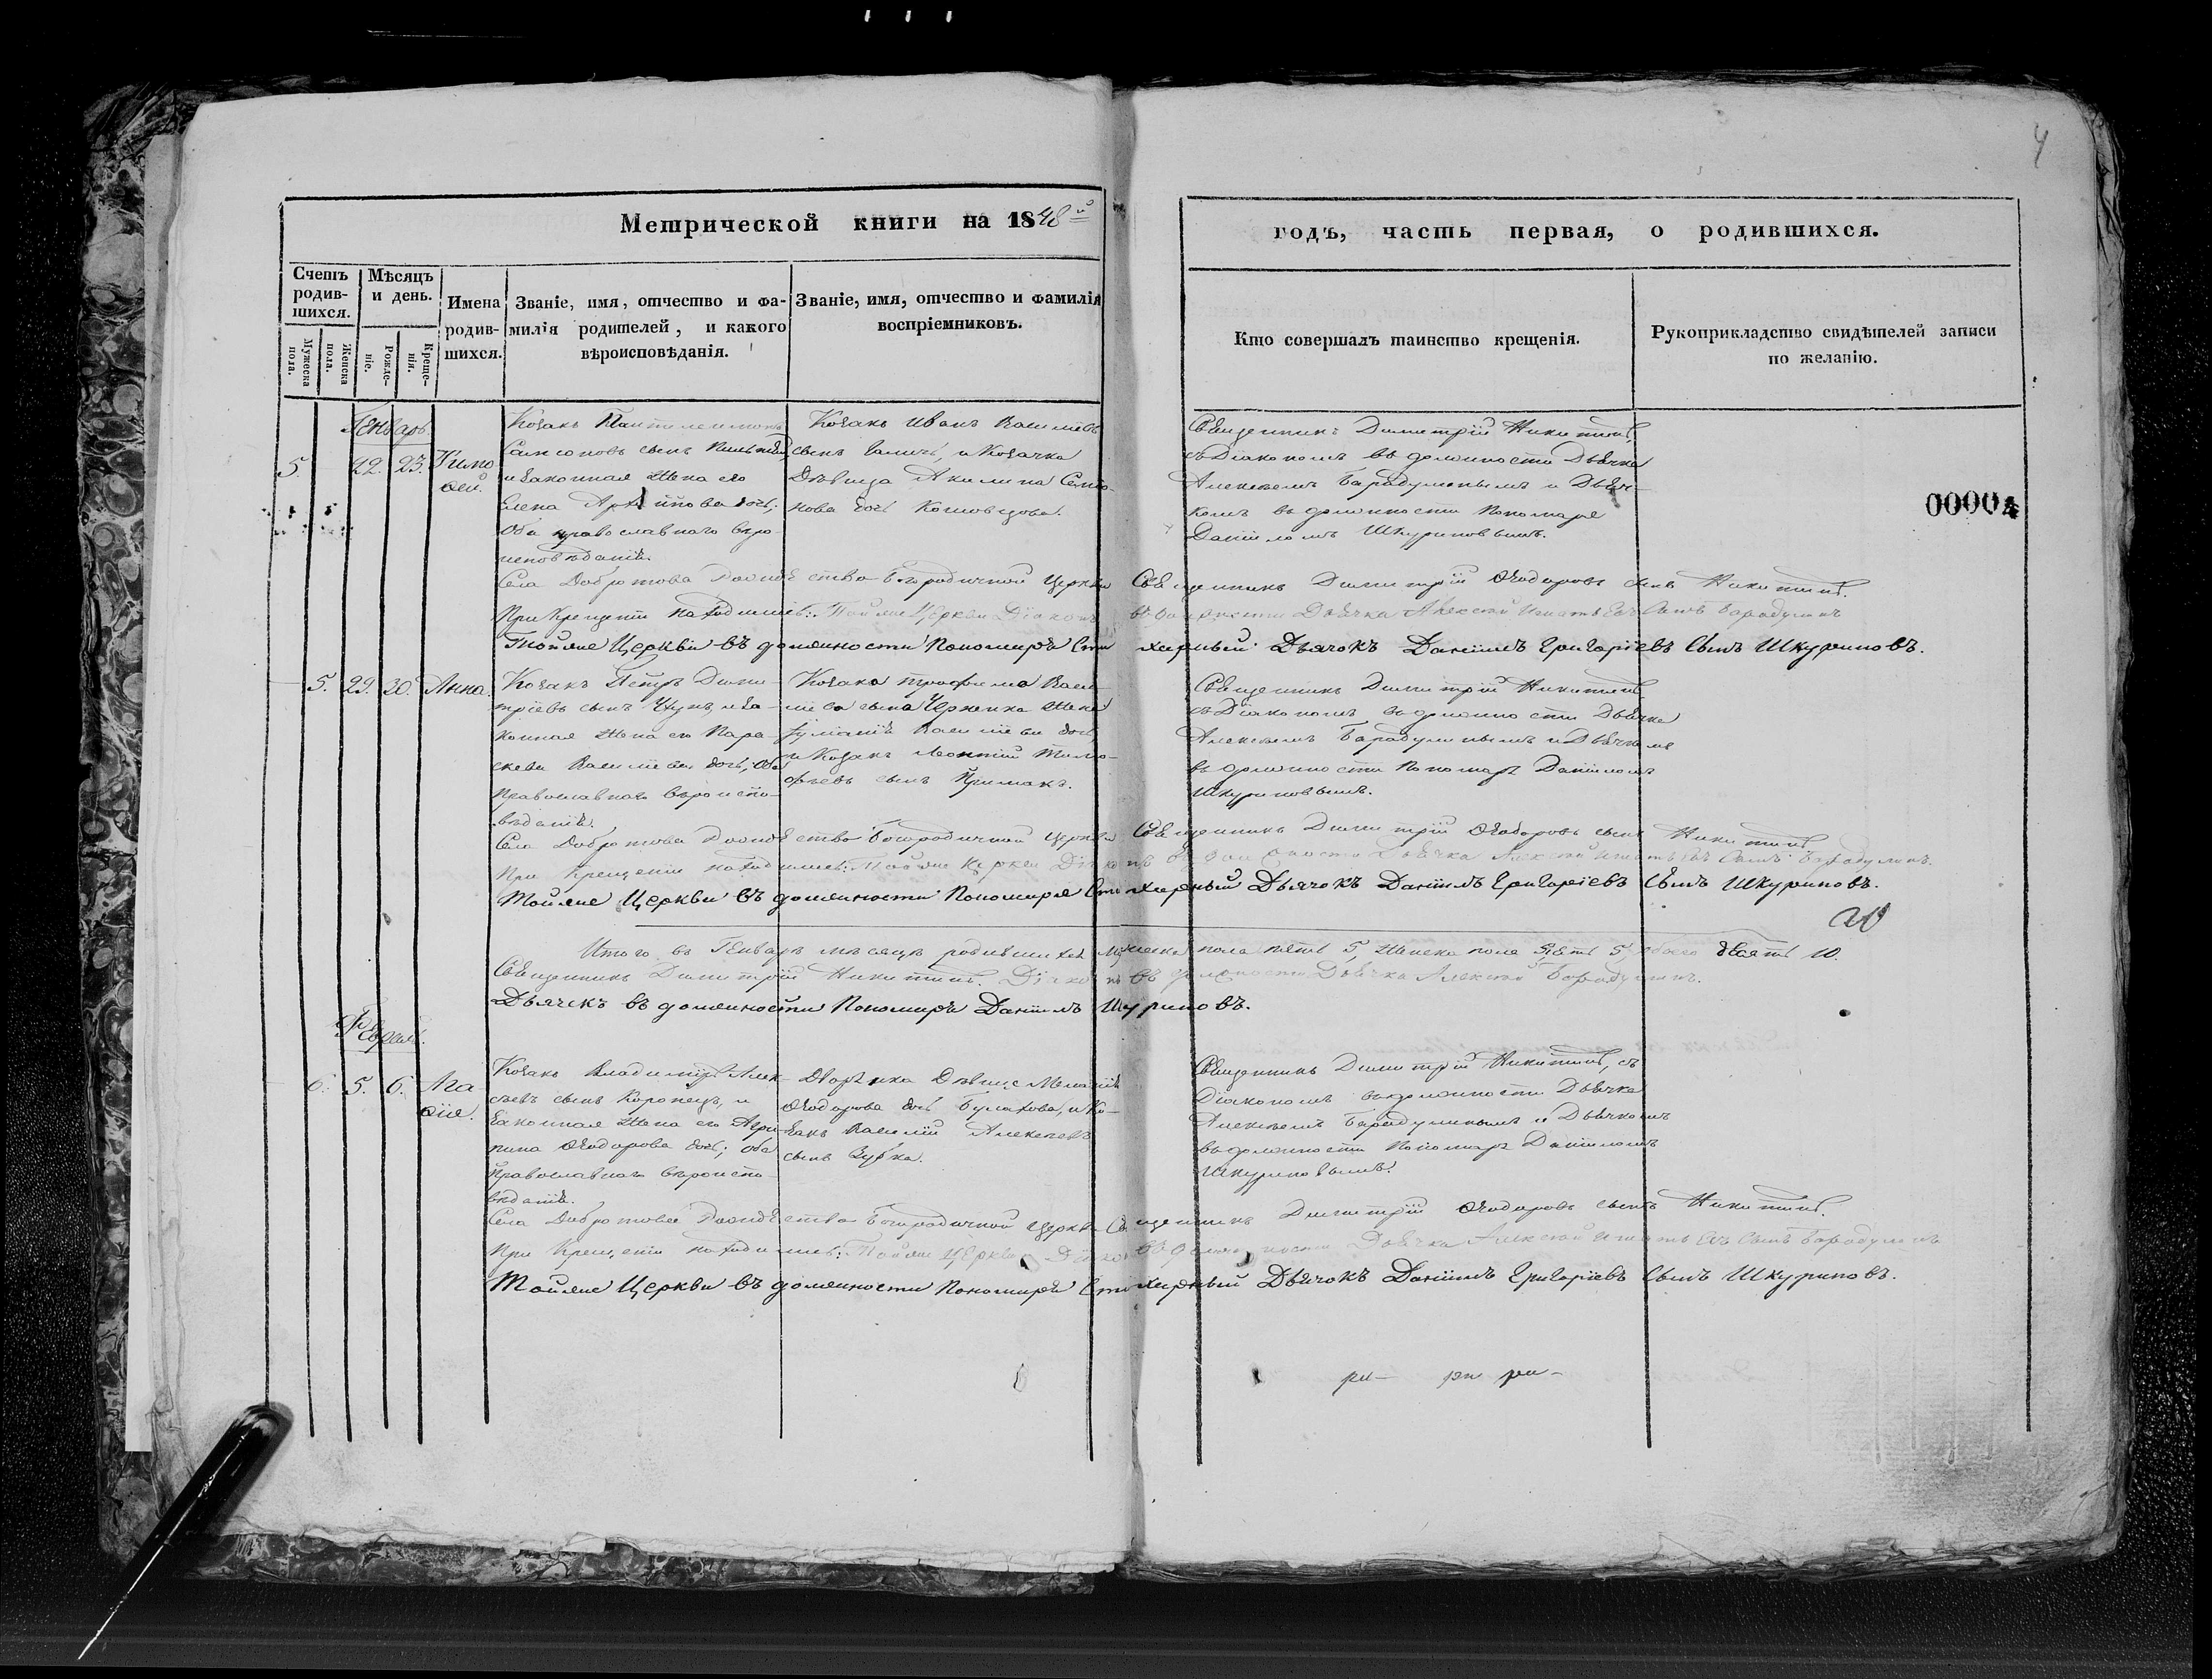 4
Метрической книги на 1848й
годъ, часть первая, о родившихся.
Счетъ родив-шихся.
Мужеска пола.
Женска пола.
Мѣсяцъ и день.
Рожде-нія.
Креще-нія.
Имена родив-шихся.
Званіе, имя, отчество и фа-милія родителей, и какого вѣроисповѣданія.
Званіе, имя, отчество и фамилія воспріемниковъ.
Кто совершалъ таинство крещенія.
Рукоприкладство свидѣтелей записи по желанію.
Генварь
5. 22. 23. Тимо
ѳей.
Козакъ Пантелеимонъ
Сампсоновъ сынъ
и законная жена его
Елена дочь;
Оба православнаго вѣро
исповѣданія.
Козакъ Иванъ Василіевъ
сынъ и Козачка
Дѣвица Акилина
дочь
Священникъ Димитрій Никитинъ,
съ Діакономъ въ должности Дьячка
Алексѣемъ Барадулинымъ и Дьяч-
комъ въ должности Пономаря
Даніиломъ Шкуриновымъ.
00004
Села Добротова Рождество-Богородичной Церкви Священникъ Димитрій Ѳеодоровъ сынъ Никитинъ.
При Крещеніи находились: Тойже Церкви Діаконъ въ должности Дьячка Алексѣй Игнатьевъ Сынъ Барадулинъ
Тойже Церкви въ должности Пономаря Стихарный Дьячокъ Даніилъ Григоріевъ Сынъ Шкуриновъ.
5. 29. 30. Анна.
Козакъ Петръ Дими-
тріевъ сынъ и за-
конная жена его Пара-
скева Василіева дочь; Оба
Православнаго вѣроиспо-
вѣданія.
Козака Трофима Васи-
ліева сына жена
Василіева дочь
и Козакъ Леонтій Тимо-
феевъ сынъ Примакъ.
Священникъ Димитрій Никитинъ
съ Діакономъ въ должности Дьячка
Алексѣемъ Барадулинымъ и Дьячкомъ
въ должности Пономаря Даніиломъ
Шкуриновымъ.
Села Добротова Рождество Богородичной Церкви Священникъ Димитрій Ѳеодоровъ сынъ Никитинъ
При Крещеніи находились: Тойже Церкви Діаконъ въ должности Дьячка Алексѣй Игнатьевъ Сынъ Барадулинъ.
Тойже Церкви въ должности Пономаря Стихарный Дьячокъ Даніилъ Григоріевъ Сынъ Шкуриновъ.
Итого въ Генварѣ мѣсяцѣ родившихся Мужеска пола пять 5, Женска пола пять 5, обоего десять 10.
Священникъ Димитрій Никитинъ. Діаконъ въ должности Дьячка Алексѣй Барадулинъ.
Дьячекъ въ должности Пономаря Даніилъ Шкуриновъ.
Февраль.
6. 5. 6. Ага
ѳія.
Козакъ Владиміръ Алек-
сѣевъ сынъ Коропецъ, и
Законная жена его Агри-
пина Ѳеодорова дочь; оба
Православнаго вѣроиспо-
вѣданія.
Дворянка Дѣвица Меланія
Ѳеодорова дочь Булахова, и Ко-
закъ Василій Алексѣевъ
сынъ Зубка.
Священникъ Димитрій Никитинъ, съ
Діакономъ въ должности Дьячка
Алексѣемъ Барадулинымъ и Дьячкомъ
въ должности Пономаря Даніиломъ
Шкуриновымъ.
Села Добротова Рождество Богородичной Церкви Священникъ Димитрій Ѳеодоровъ сынъ Никитинъ.
При Крещеніи находились: Тойже Церкви Діаконъ въ должности Дьячка Алексѣй Игнатьевъ Сынъ Барадулинъ
Тойже Церкви въ должности Пономаря Стихарный Дьячокъ Даніилъ Григоріевъ Сынъ Шкуриновъ.